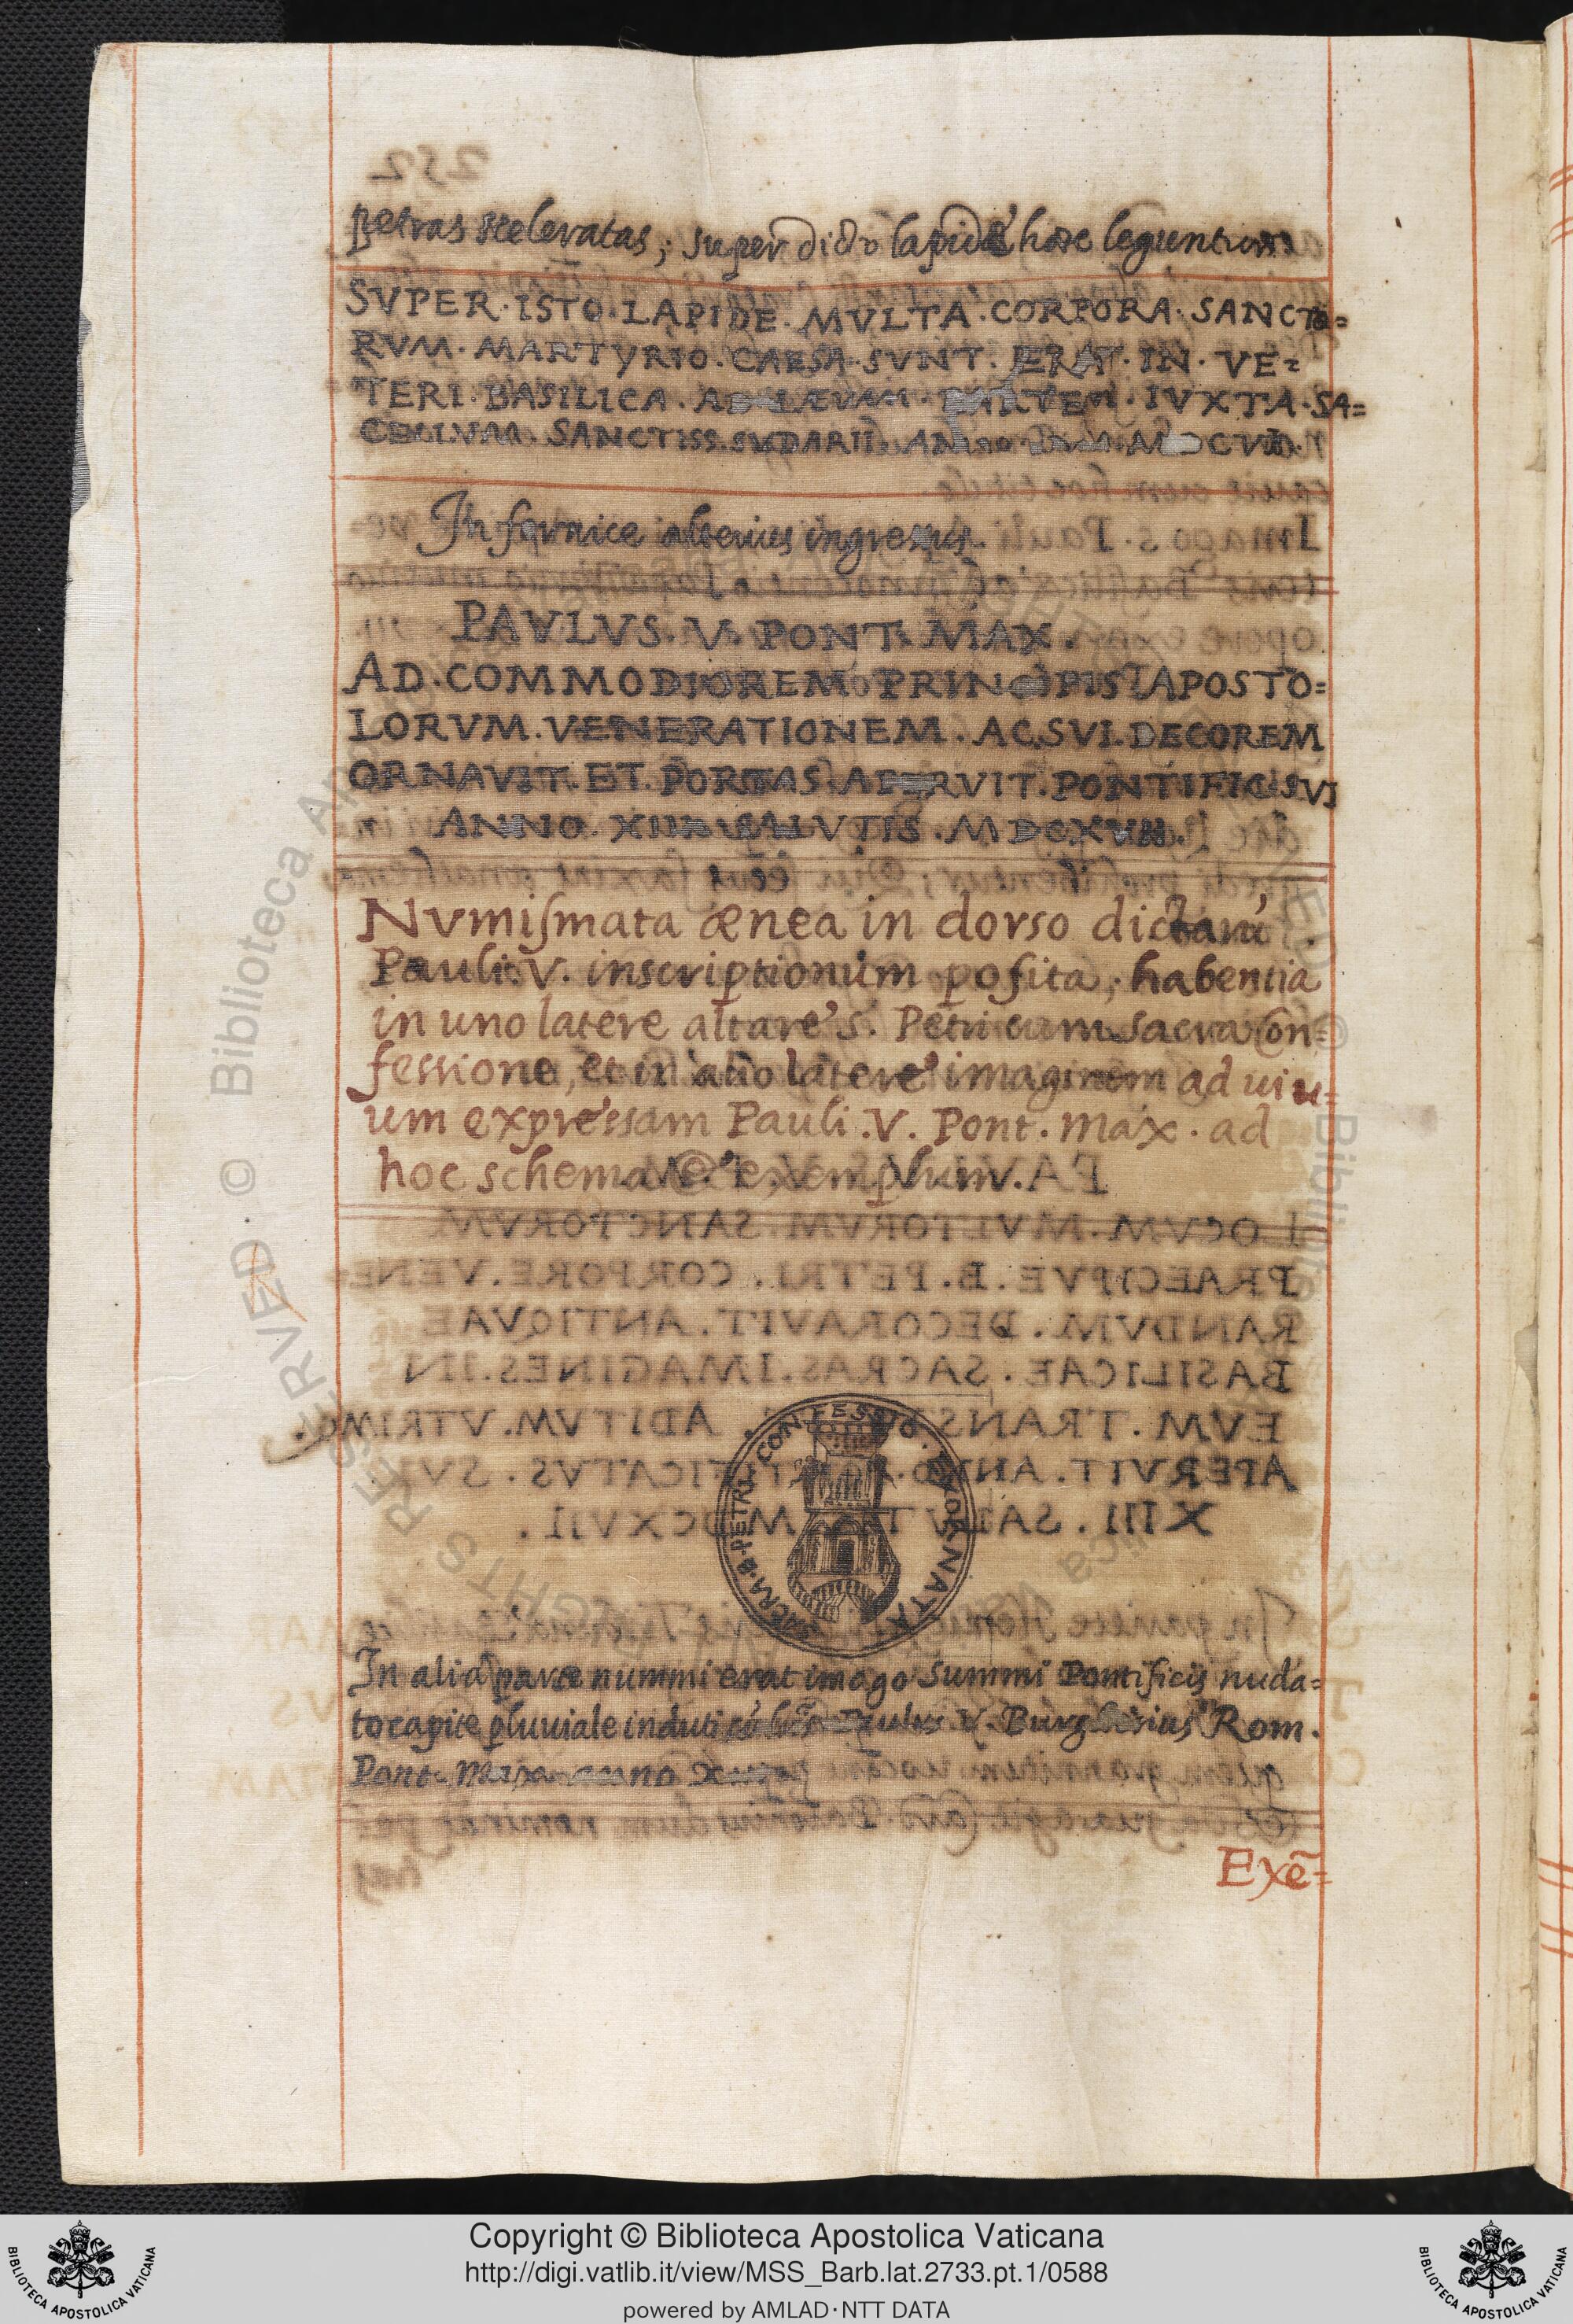 petras sceleratas; super dicto lapide hæc leguntur
SVPER·ISTO·LAPIDE·MVLTA·CORPORA·SANCTO=
RVM·MARTYRIO·CAESA·SVNT·ERAT·IN·VE=
TERI·BASILICA·AD·LÆVAM·PARTEM·IVXTA·SA=
CELLVM·SANCTISS·SVDARII
In fornice alterius ingressus.
PAVLVS·V·PONT·MAX·
AD·COMMODIOREM·PRINCIPIS·APOSTO=
LORVM·VENERATIONEM·AC·SVI·DECOREM
ORNAVIT·ET·PORTAS·APERVIT·PONTIFIC·SVI
ANNO·XIII·SALVTIS·MDCXVII·
Numismata ænea in dorso dictarū
Pauli·V·inscriptionum posita, habentia
in uno latere altare S. Petri cum sacra Con=
fessione, et in alio latere imaginem ad uiu=
um expressam Pauli·V·Pont·Max·ad
hoc schema et exemplum.
SACRA·B·PETRI·CONFESSIO·EXORNATA
In alia parte nummi erat imago Summi Pontificis nuda=
to capite pluuiale induti Paulus·V·Burghesius Rom.
Pont. Max anno
Exē=
Copyright © Biblioteca Apostolica Vaticana
http://digi.vatlib.it/view/MSS_Barb.lat.2733.pt.1/0588
powered by AMLAD·NTT DATA
BIBLIOTECA APOSTOLICA VATICANA
BIBLIOTECA APOSTOLICA VATICANA